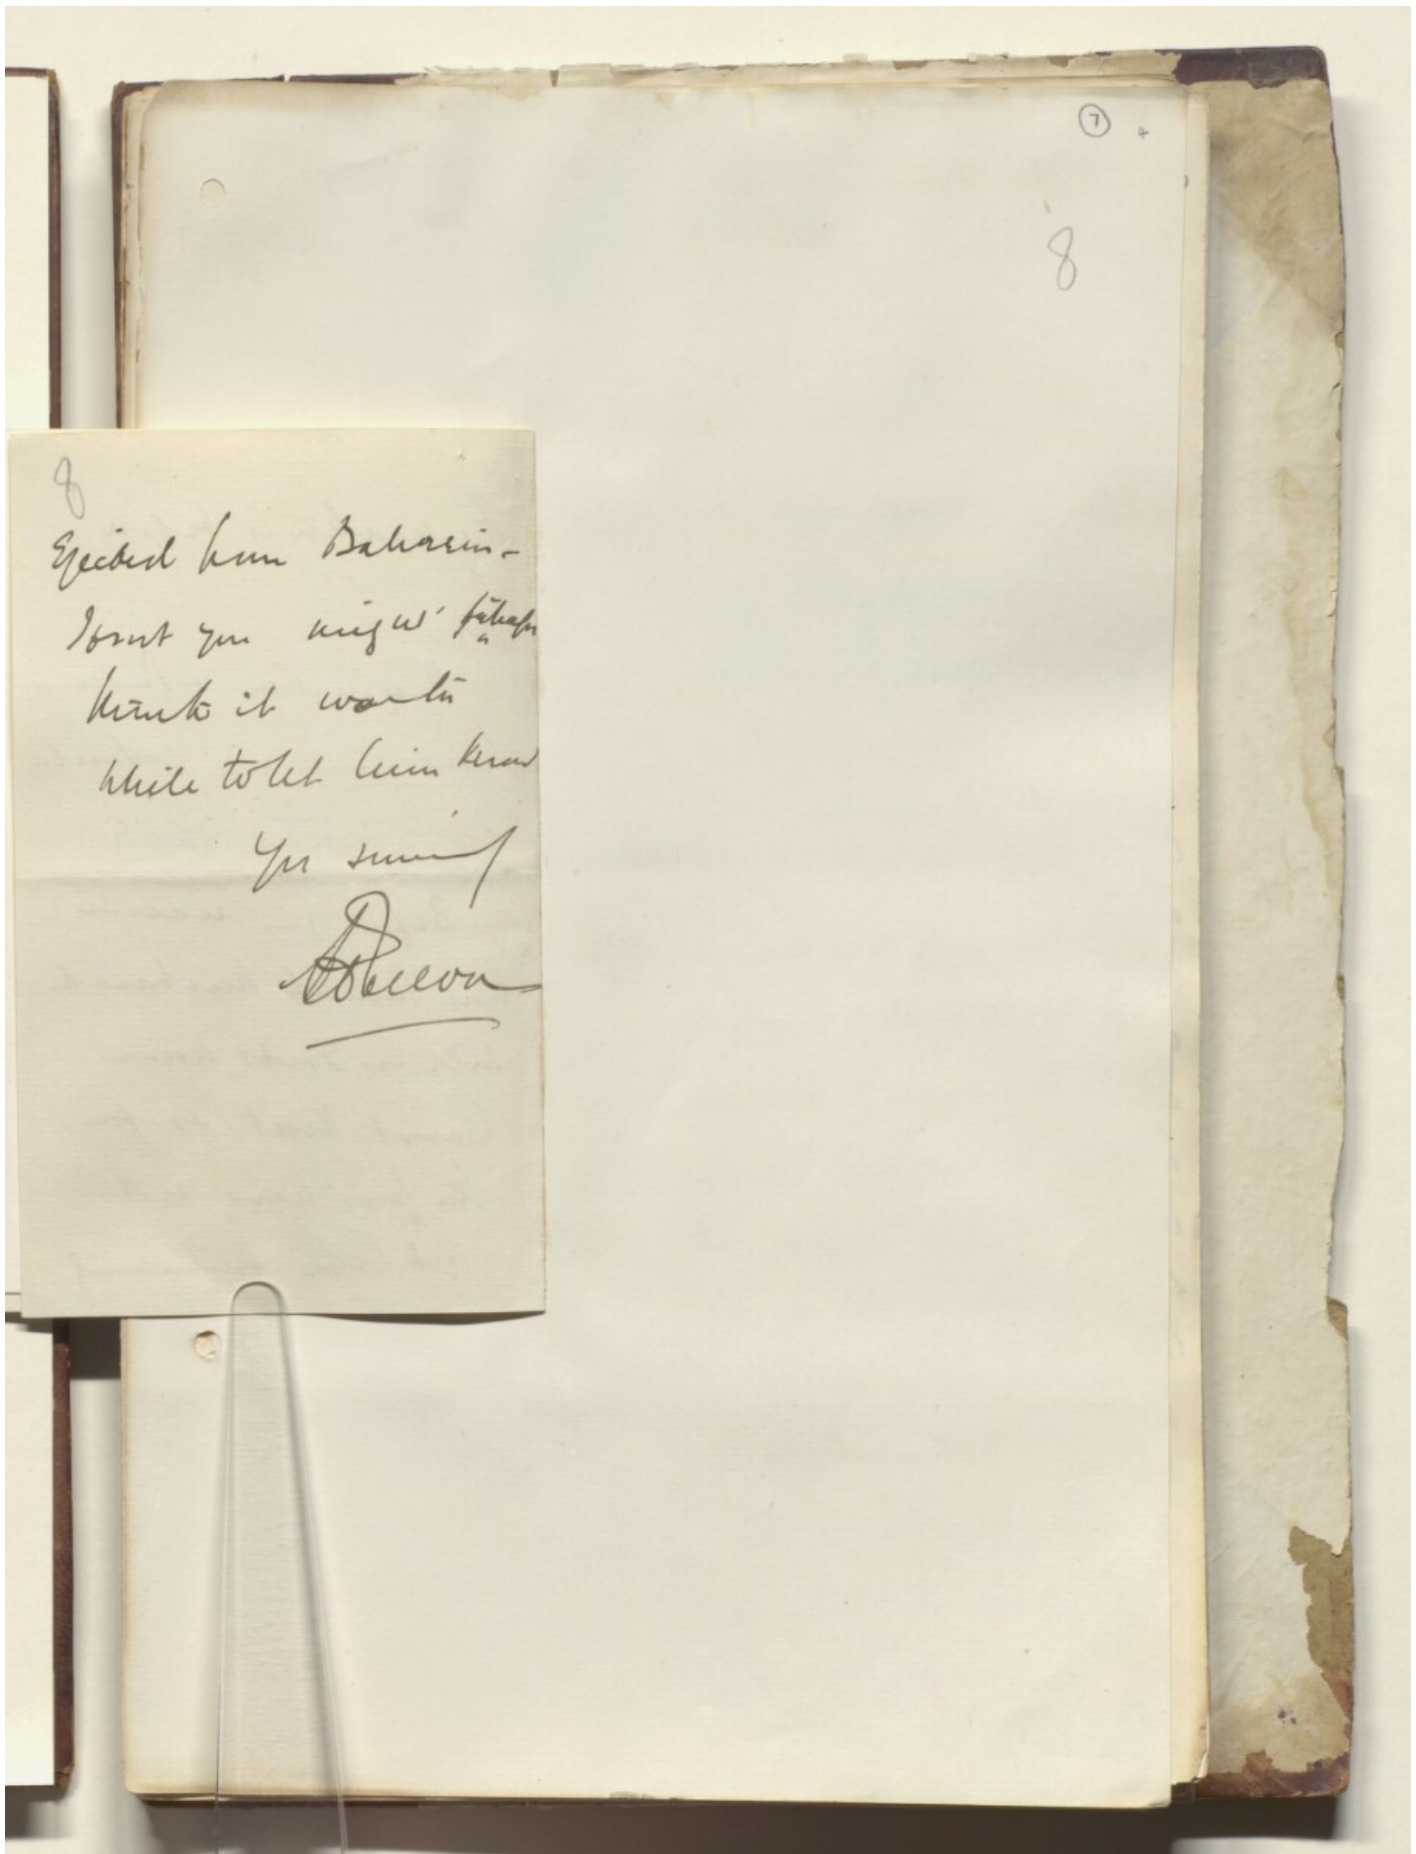 7
8
8
Ejected from Bahrein -
I trust you might perhaps
think it worth
while to let him know
Yrs sincerely